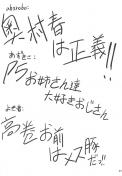 akarado:
奥村春
は正義!!
あずきこ:
P5
お姉さん達
大好きおじさん
よき者:
高巻お前
はメス豚
だッ!